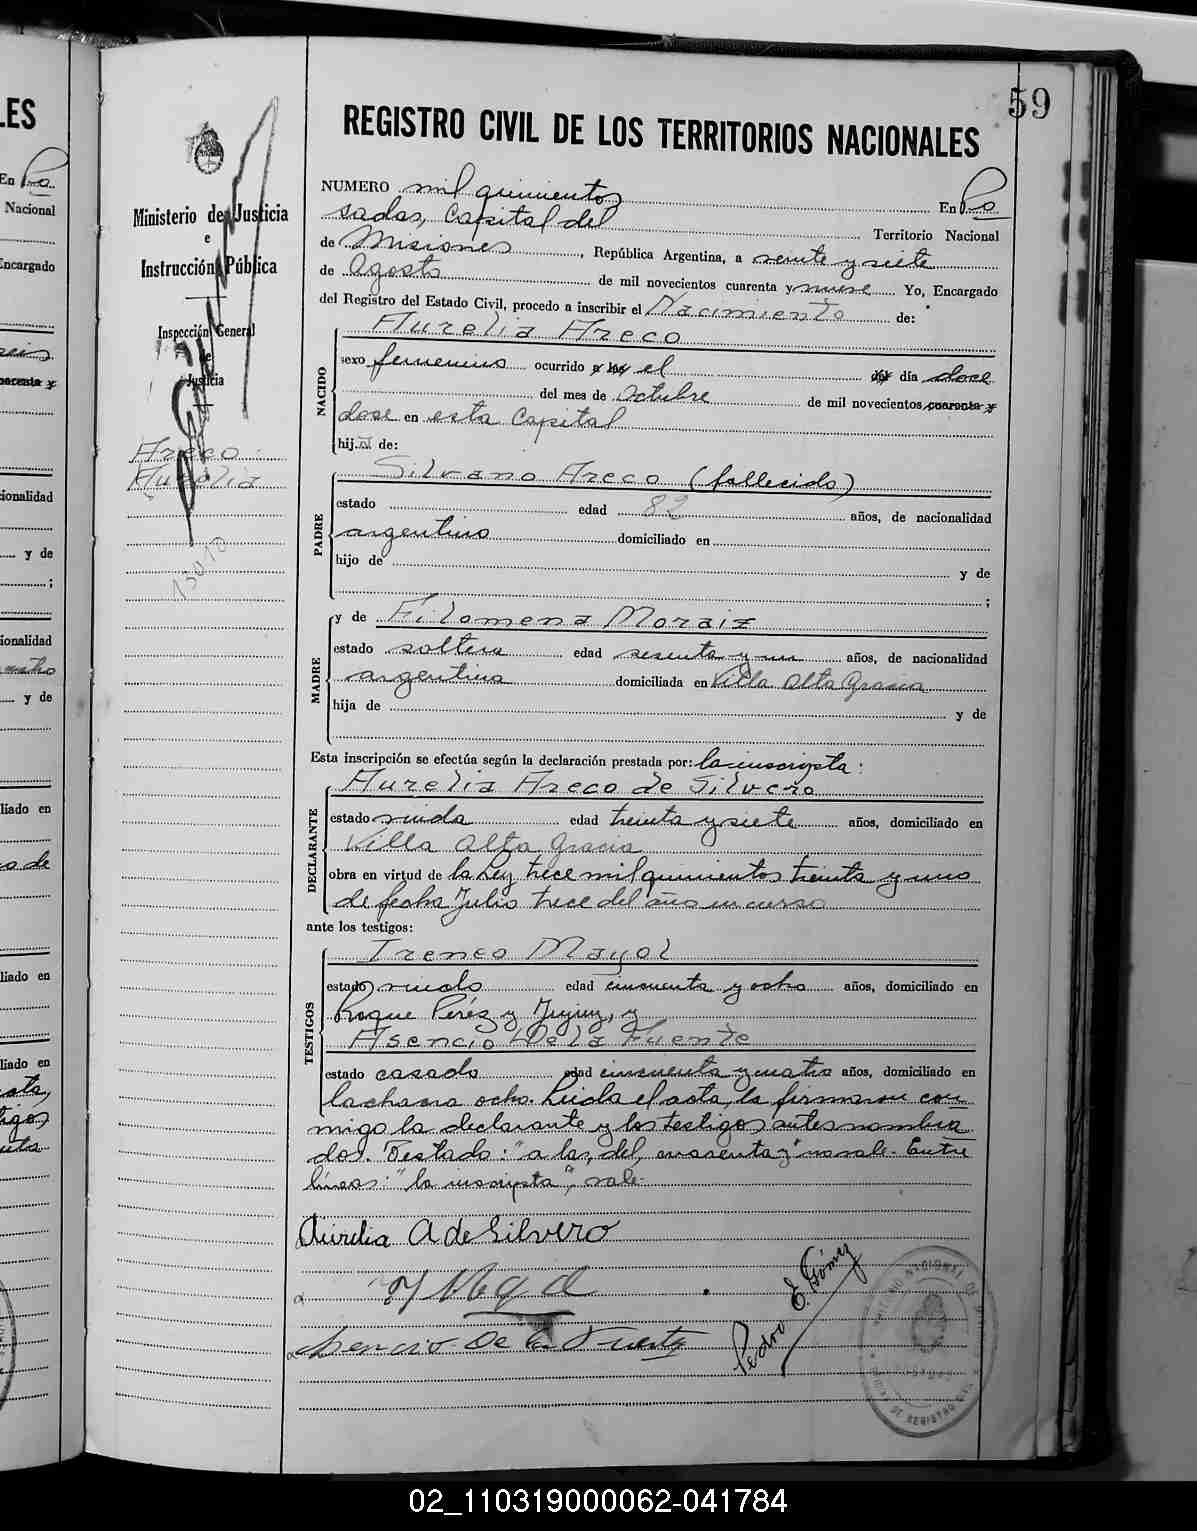 59
REGISTRO CIVIL DE LOS TERRITORIOS NACIONALES
Ministerio de Justicia
e
Instrucción Pública
Inspección General
de
Justicia
Areco
Aurelia
13010
NUMERO mil quinientos En Po
sadas, Capital del Territorio Nacional
de Misiones, República Argentina, a veinte y siete
de Agosto de mil novecientos cuarenta y nueve Yo, Encargado
del Registro del Estado Civil, procedo a inscribir el Nacimiento de:
Aurelia Areco
NACIDO
sexo femenino ocurrido a las el del día doce
del mes de Octubre de mil novecientos cuarenta y
doce en esta Capital
hija de:
PADRE
Silvano Areco (fallecido)
estado edad 82 años, de nacionalidad
argentino domiciliado en
hijo de y de
;
MADRE
y de Filomena Moraiz
estado soltera edad sesenta y un años, de nacionalidad
argentina domiciliada en Villa Alta Gracia
hija de y de
Esta inscripción se efectúa según la declaración prestada por: la inscripta:
DECLARANTE
Aurelia Areco de Silvero
estado viuda edad treinta y siete años, domiciliado en
Villa Alta Gracia
obra en virtud de la Ley trece mil quinientos treinta y uno
de fecha Julio trece del año en curso
ante los testigos:
TESTIGOS
Ireneo Mayol
estado viudo edad cincuenta y ocho años, domiciliado en
Roque Pérez y Jujuy, y
Asencio De la Fuente
estado casado edad cincuenta y cuatro años, domiciliado en
la chacra ocho. Leída el acta, la firmaron con
migo la declarante y los testigos antes nombra
dos. Testado: "a las, del, cuarenta y" no vale. Entre
líneas: "la inscripta", vale.
Aurelia A de Silvero
Asencio De la Fuente
Pedro E. Gómez
02_110319000062-041784